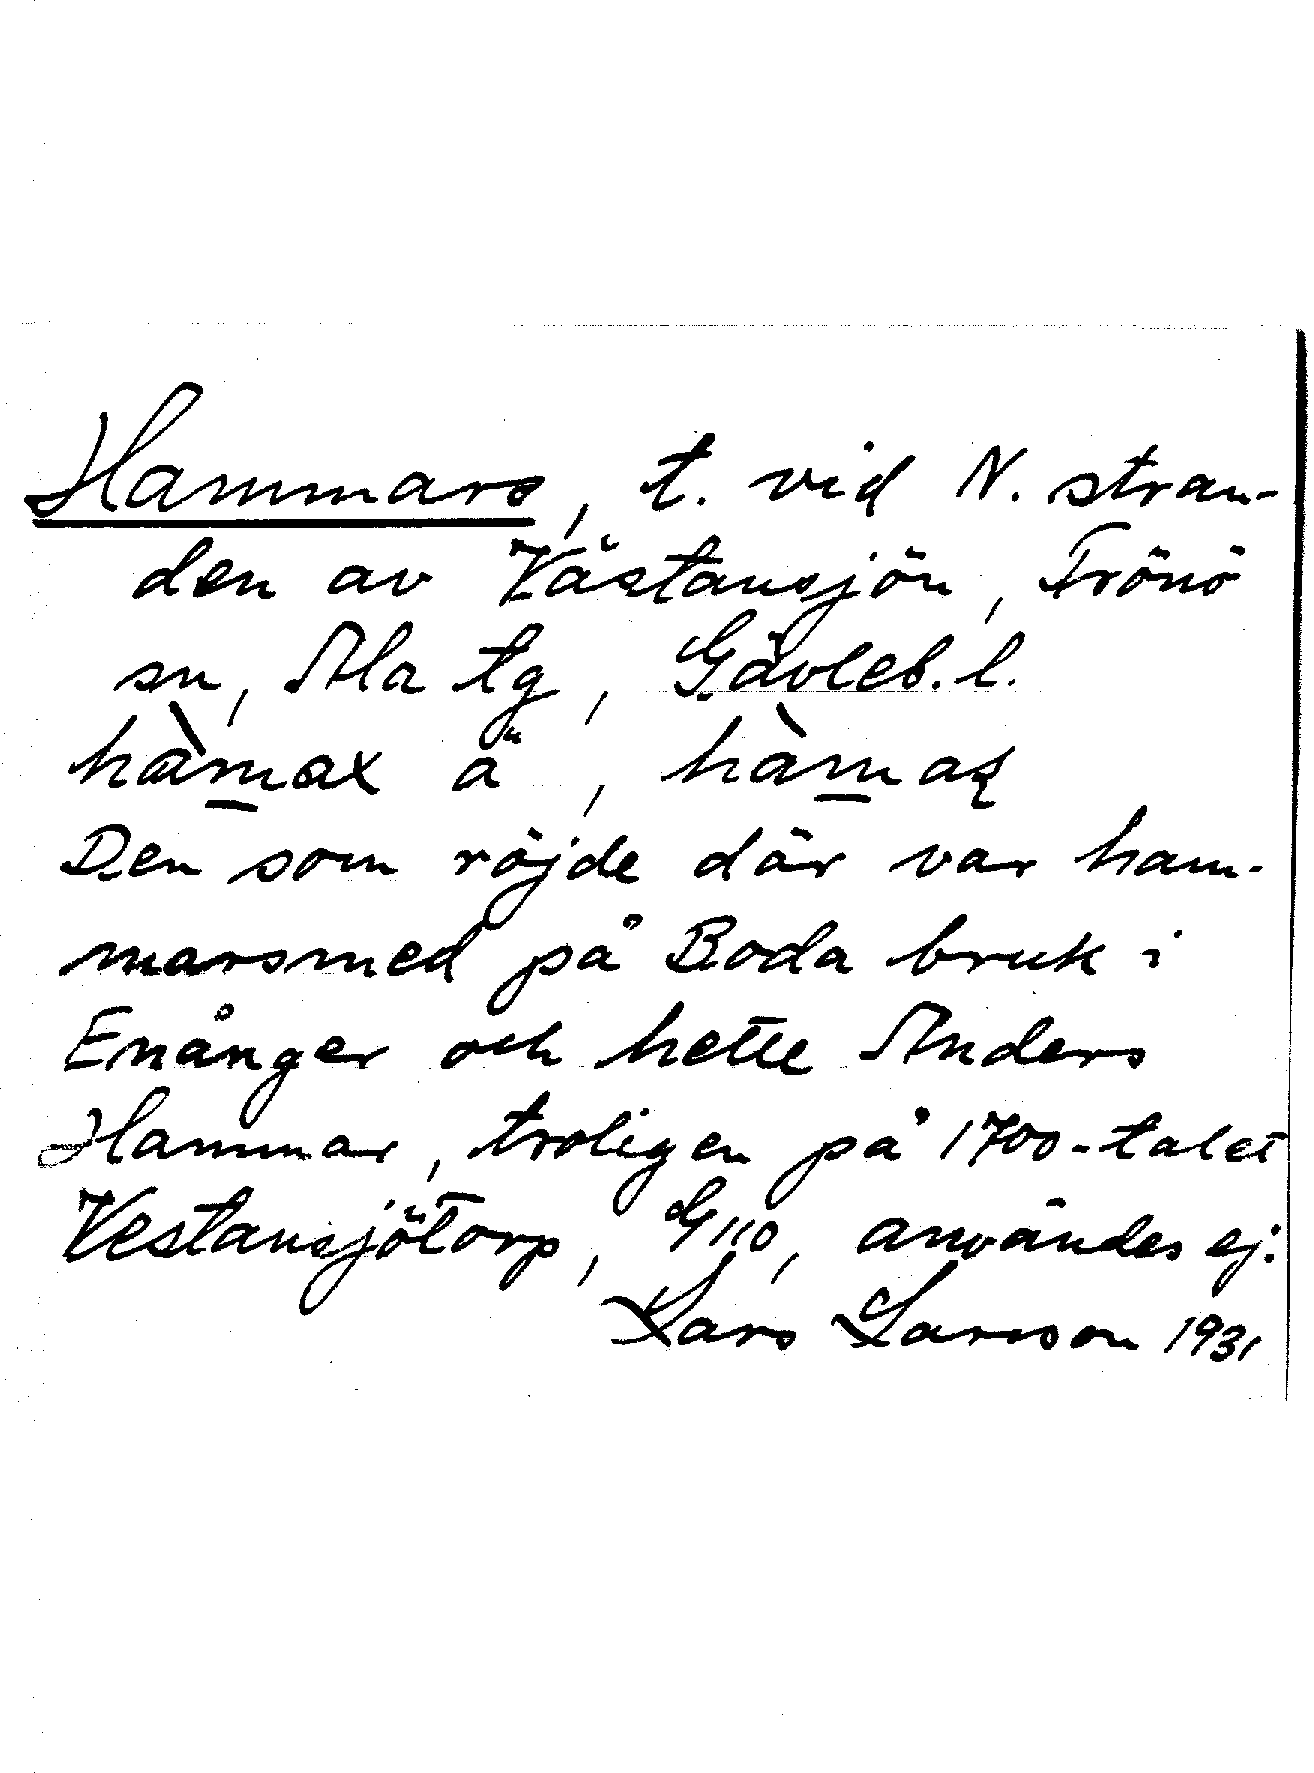 Hammars, t. vid N. stran-
den av Västansjön, Trönö
sn, Ala tg, Gävleb. l.
hàm̱ax ä, hàm̱aʂ
Den som röjde där var ham-
marsmed på Boda bruk i
Enånger och hette Anders
Hammar, troligen på 1700-talet
Vestansjötorp, G110, användes ej.
Lars Larsson 1931